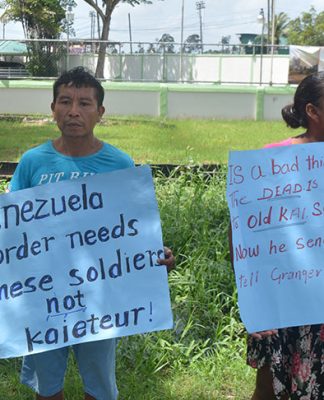 PIT BU
enezuela
order needs
hese soldiers
not
Kaieteur!
Is a bad thi
The DEAD is
to Old KAI. S
Now he sen
tell Granger